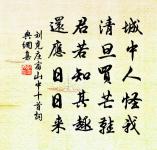 城中人怪我
清旦買芒鞋
君若知其趣
還應日日来
刘克庄畲山中十首詞
典網集